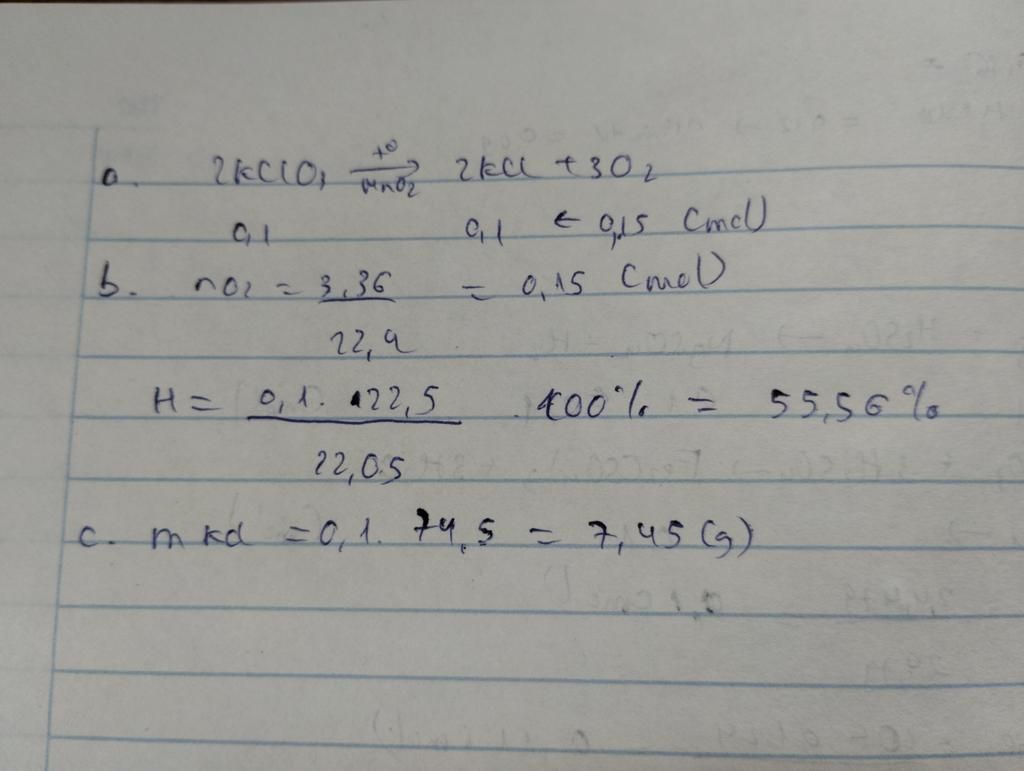 a. 2KClO₃ →(t⁰, MnO₂) 2KCl + 3O₂
0,1 0,1 ← 0,15 (mol)
b. nO₂ = 3,36 / 22,4 = 0,15 (mol)
H = 0,1 . 122,5 / 22,05 . 100% = 55,56%
c. mKCl = 0,1 . 74,5 = 7,45 (g)